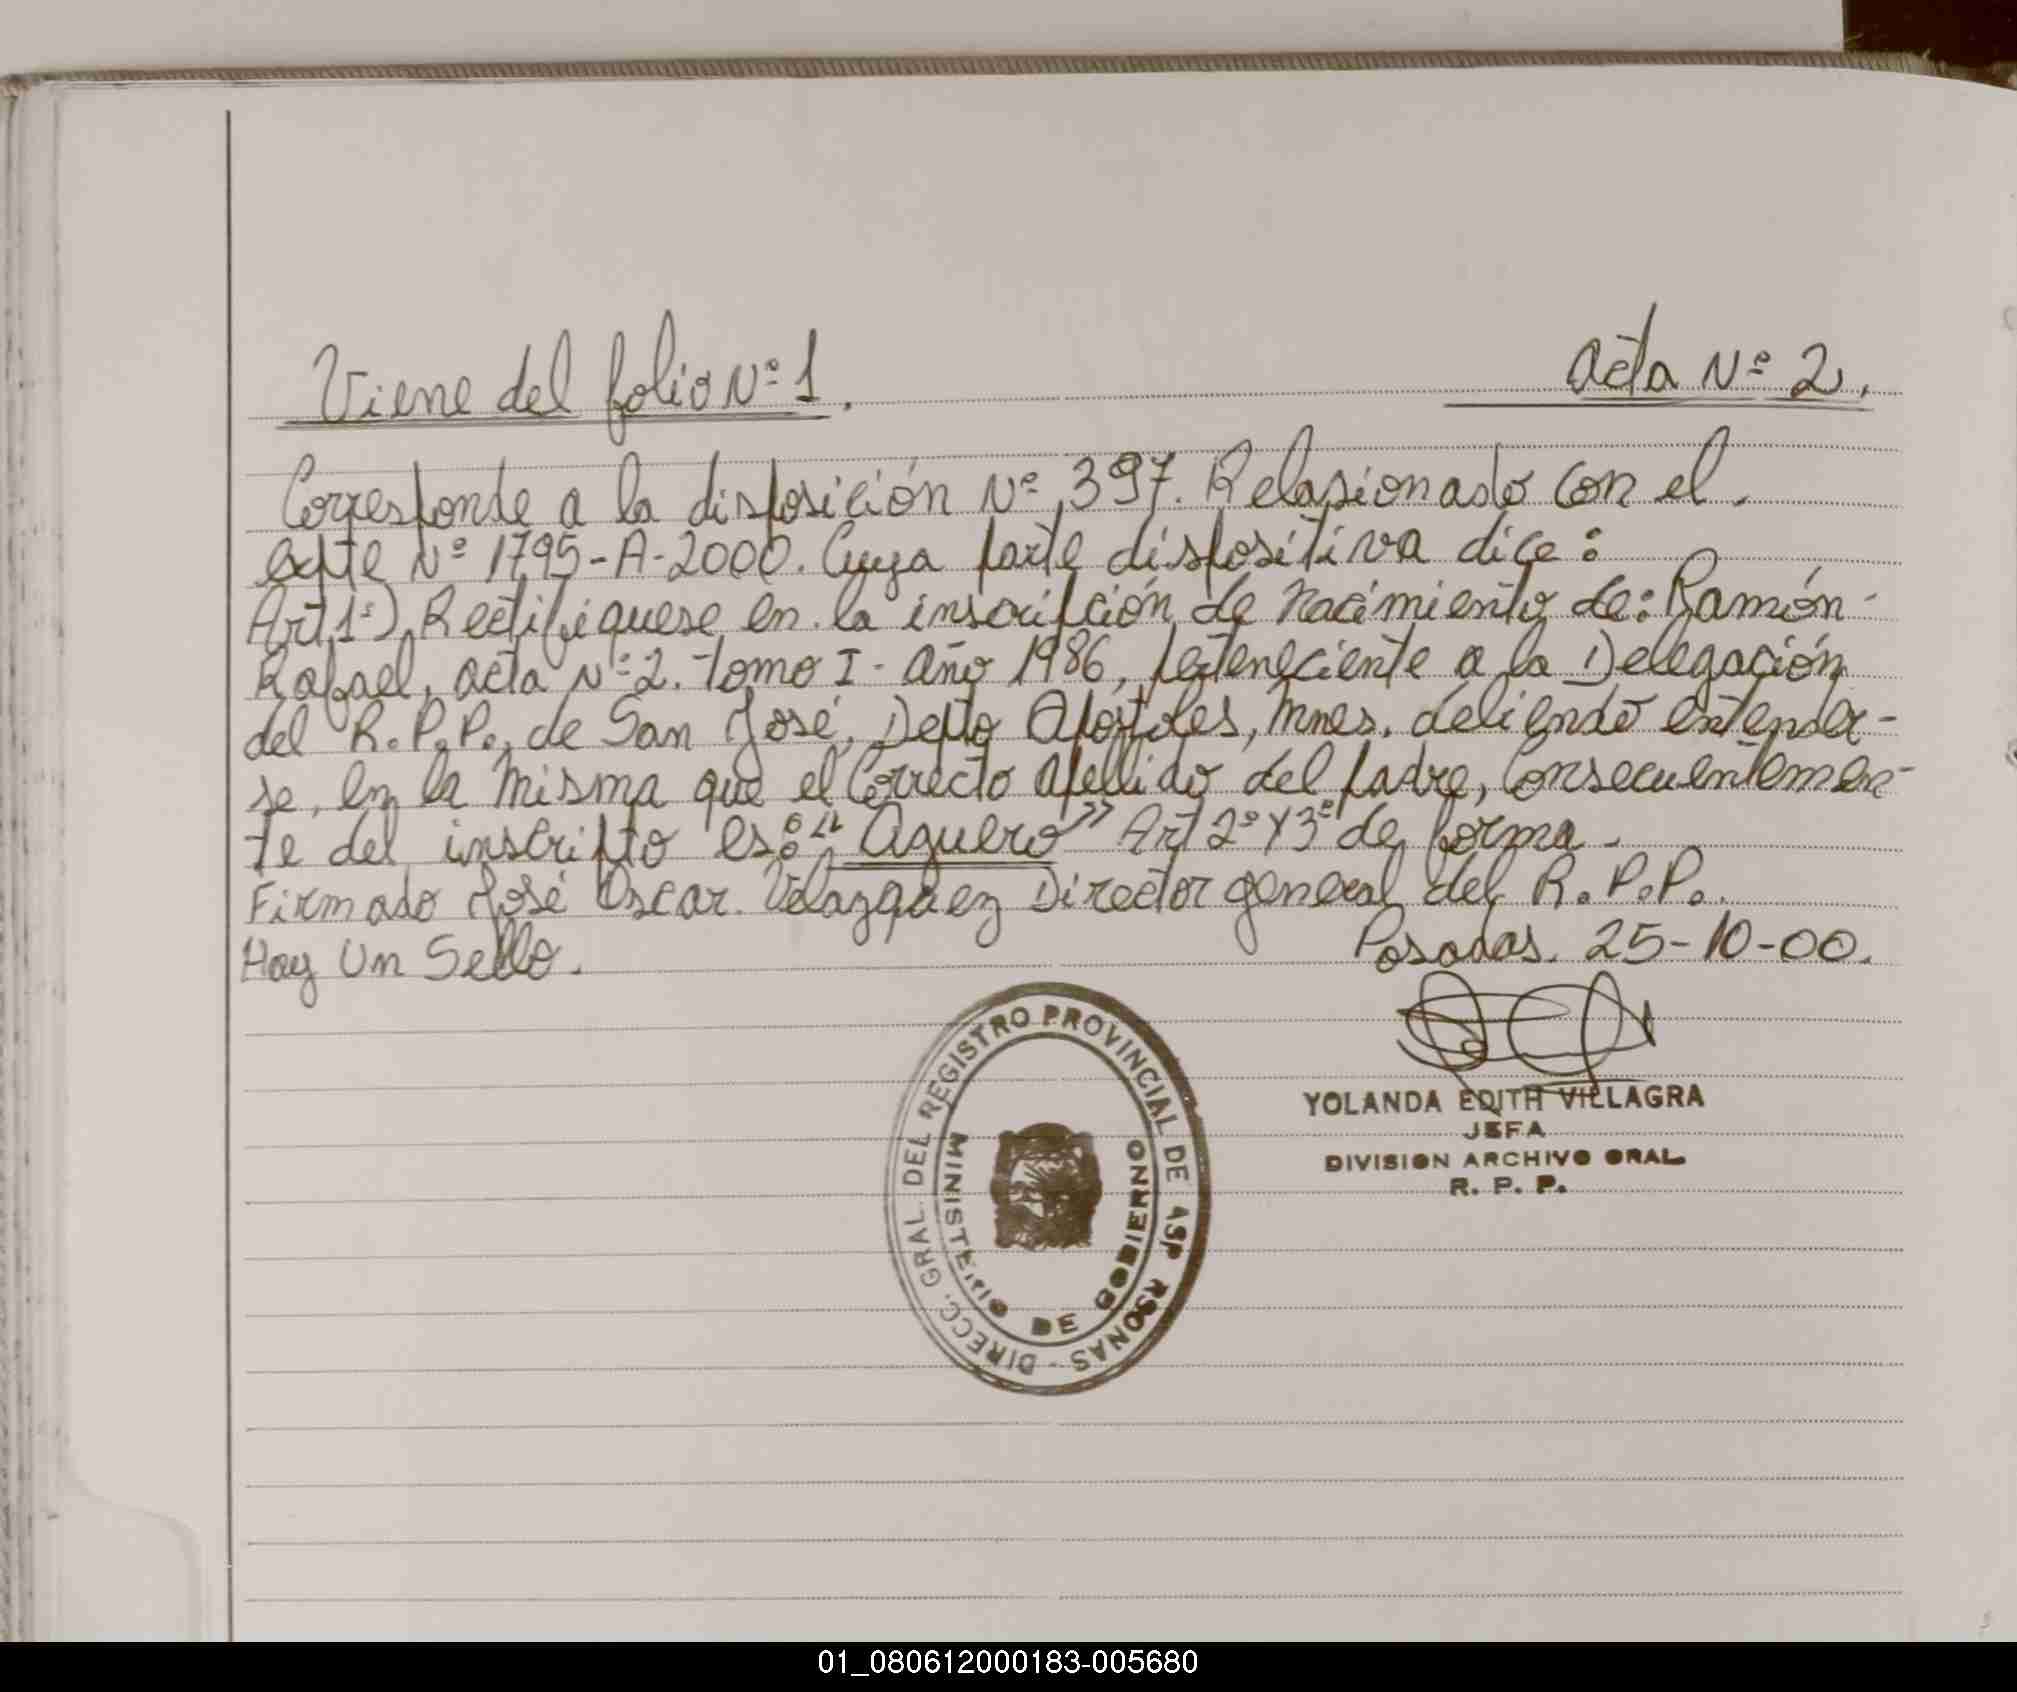 Viene del folio Nº 1.
Acta Nº 2.
Corresponde a la disposición Nº 397. Relasionado con el.
expte Nº 1795-A-2000. Cuya parte dispositiva dice:
Art 1º) Rectifiquese en la inscripción de nacimiento de: Ramón-
Rafael, acta Nº 2. tomo I - año 1986, perteneciente a la Delegación
del R.P.P. de San José, Depto Apóstoles, Mnes. debiendo entender-
se, en la misma que el Correcto apellido del padre, Consecuentemen-
te del inscripto es: "Aguero" Art 2º y 3º de forma.
Firmado José Oscar. Velazquez Director general del R.P.P.
Hay Un Sello.
Posadas. 25-10-00.
YOLANDA EDITH VILLAGRA
JEFA
DIVISION ARCHIVO GRAL.
R. P. P.
DIRECC. GRAL. DEL REGISTRO PROVINCIAL DE LAS PERSONAS -
MINISTERIO DE GOBIERNO
01_080612000183-005680